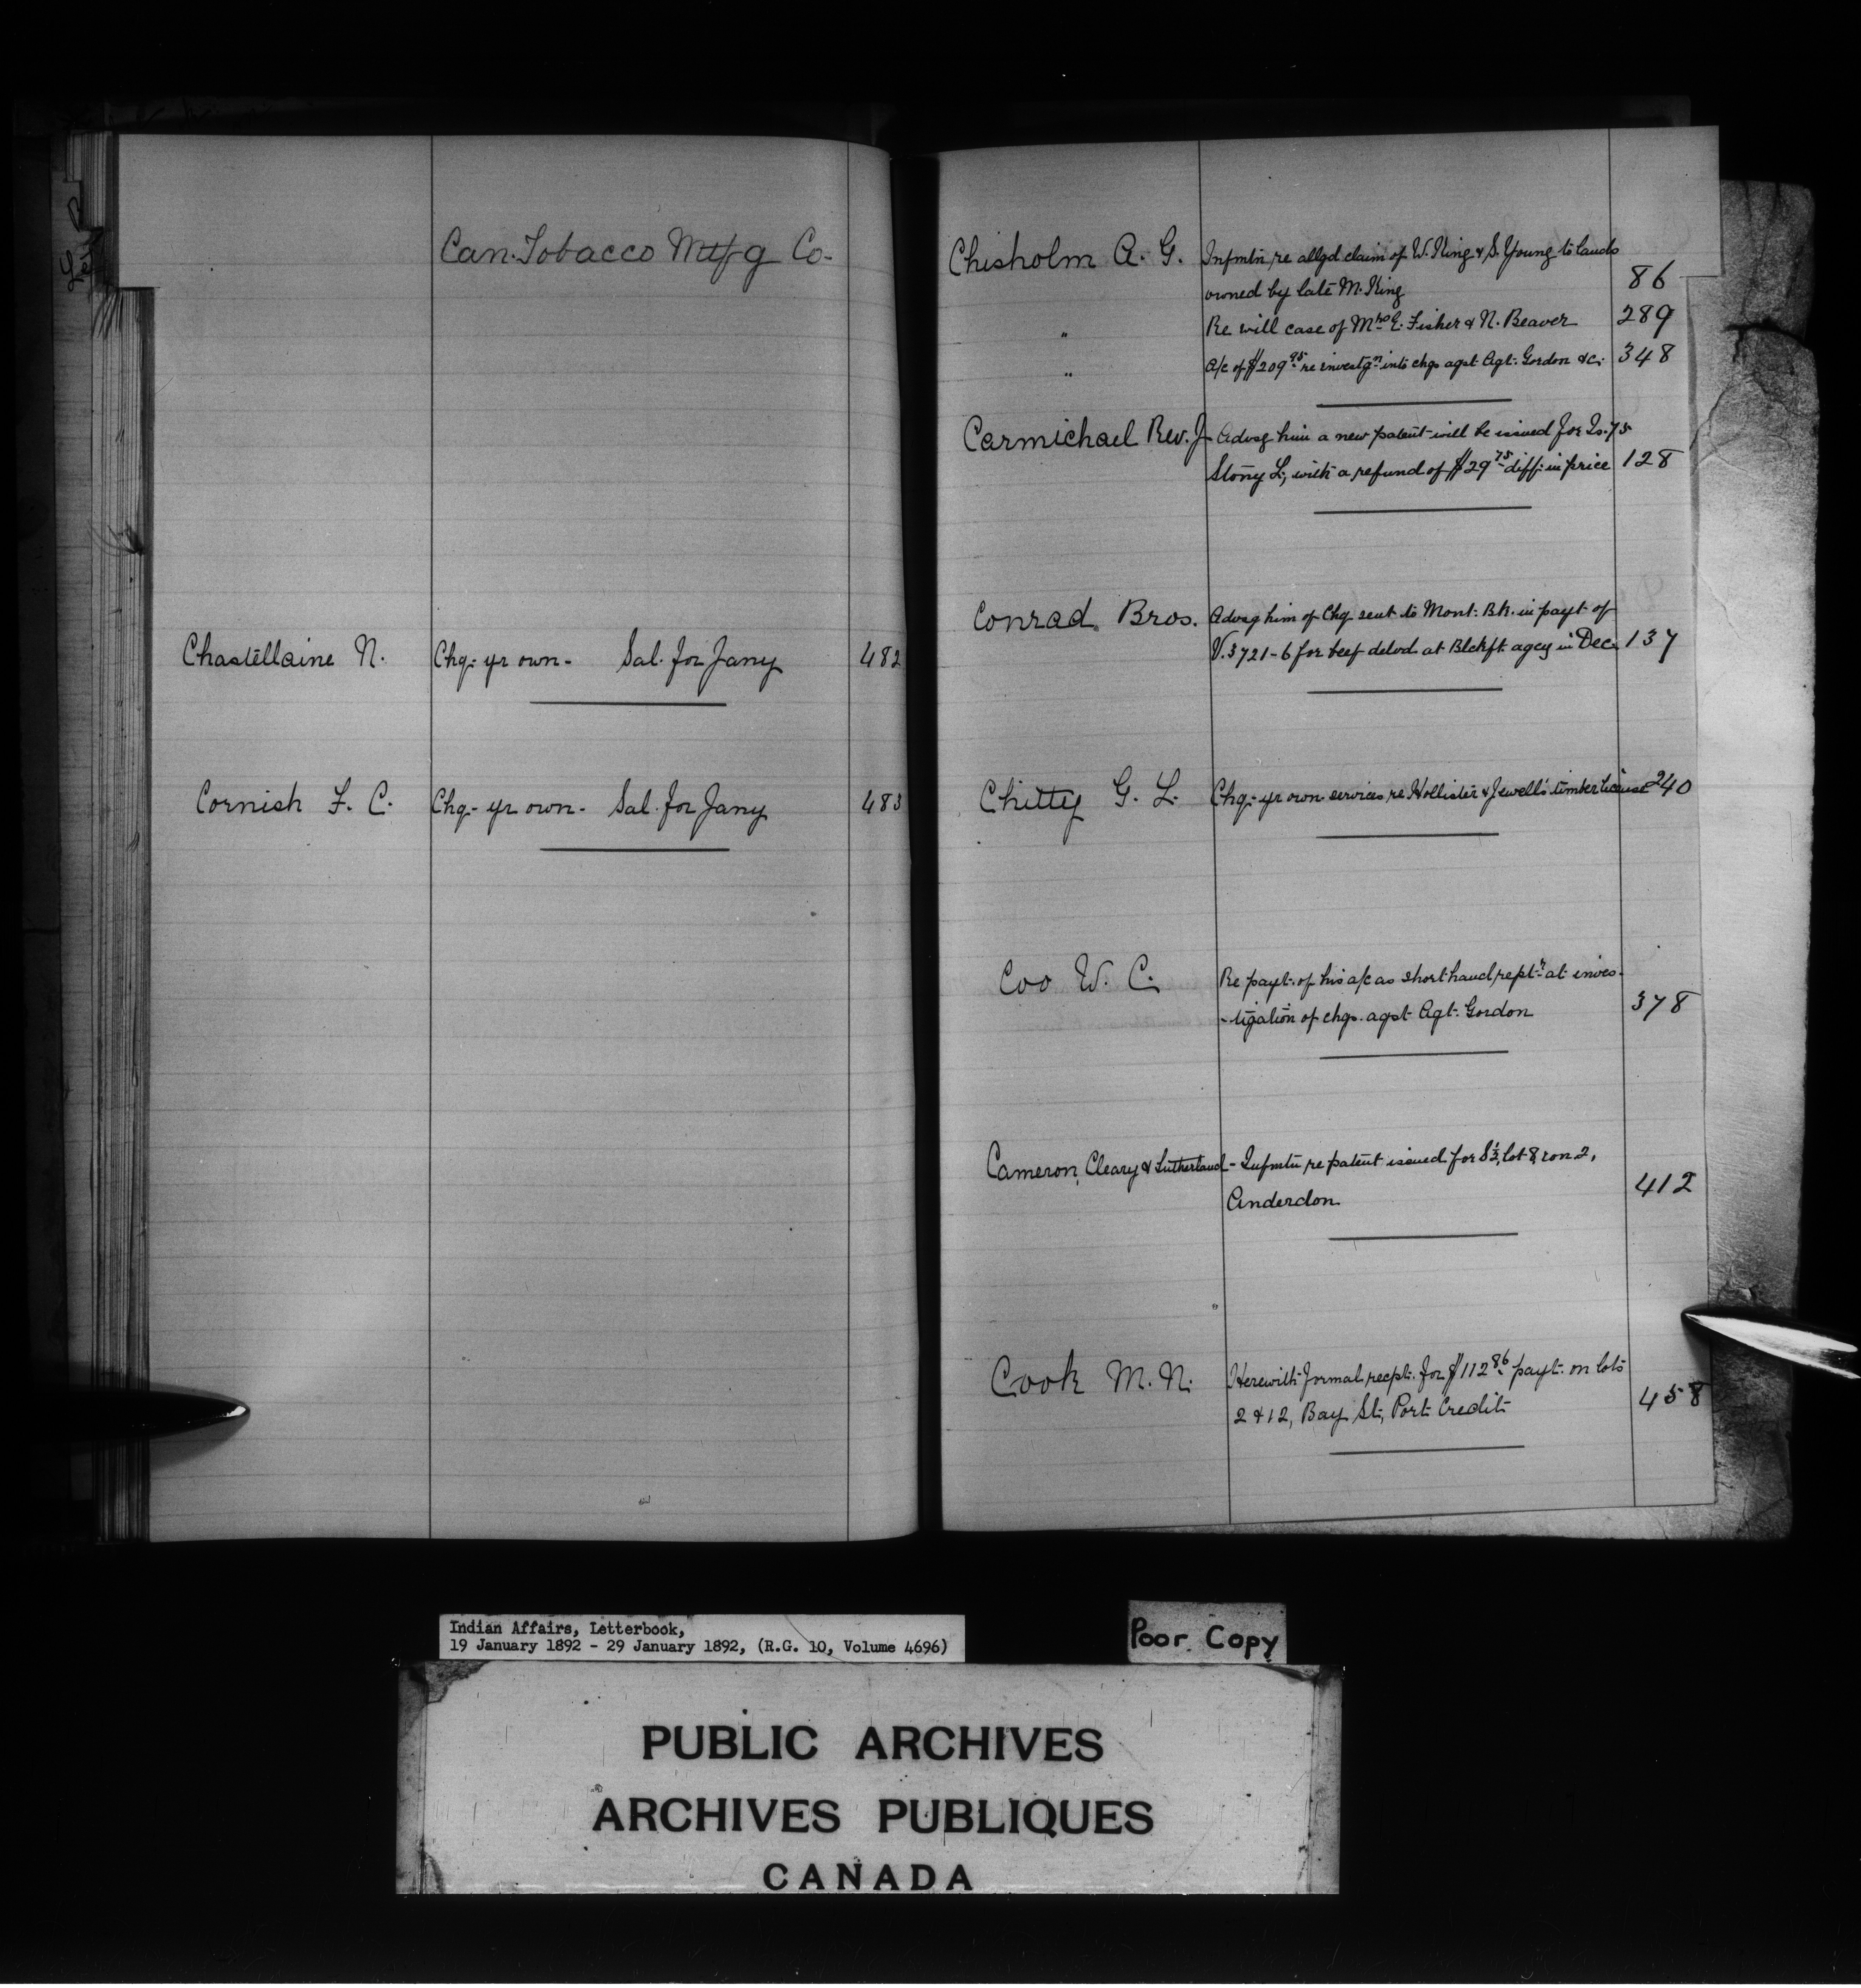 Can. Tobacco Mtfg Co-
Chastellaine N. Chq- yr own- Sal. for Jany 482
Cornish F. C. Chq- yr own- Sal. for Jany 483
Chisholm A. G. Infmtn re allgd claim of W. King & S. Young to lands
owned by late M. King 86
" Re will case of Mrs E. Fisher & N. Beaver 289
" A/c of $209.95 re investgn into chgs agst Agt. Gordon &c. 348
Carmichael Rev. J. Advsg him a new patent will be issued for Is. 75
Stony L, with a refund of $29.75 diff. in price 128
Conrad Bros. Advsg him of Chq sent to Mont. Bk. in payt of
V. 3721-6 for beef delvd at Blckft agcy in Dec. 137
Chitty G. L. Chq- yr own- services re Hollister & Jewell's timber license 240
Coo W. C. Re payt. of his a/c as shorthand reptr at inves-
-tigation of chgs. agst Agt. Gordon 378
Cameron, Cleary & Sutherland - Infmtn re patent issued for S½, lot 8, con. 2,
Anderdon 412
Cook M. N. Herewith formal recpt. for $112.86 payt. on lots
2 & 12, Bay St, Port Credit 458
Indian Affairs, Letterbook,
19 January 1892 - 29 January 1892, (R.G. 10, Volume 4696)
Poor Copy
PUBLIC ARCHIVES
ARCHIVES PUBLIQUES
CANADA